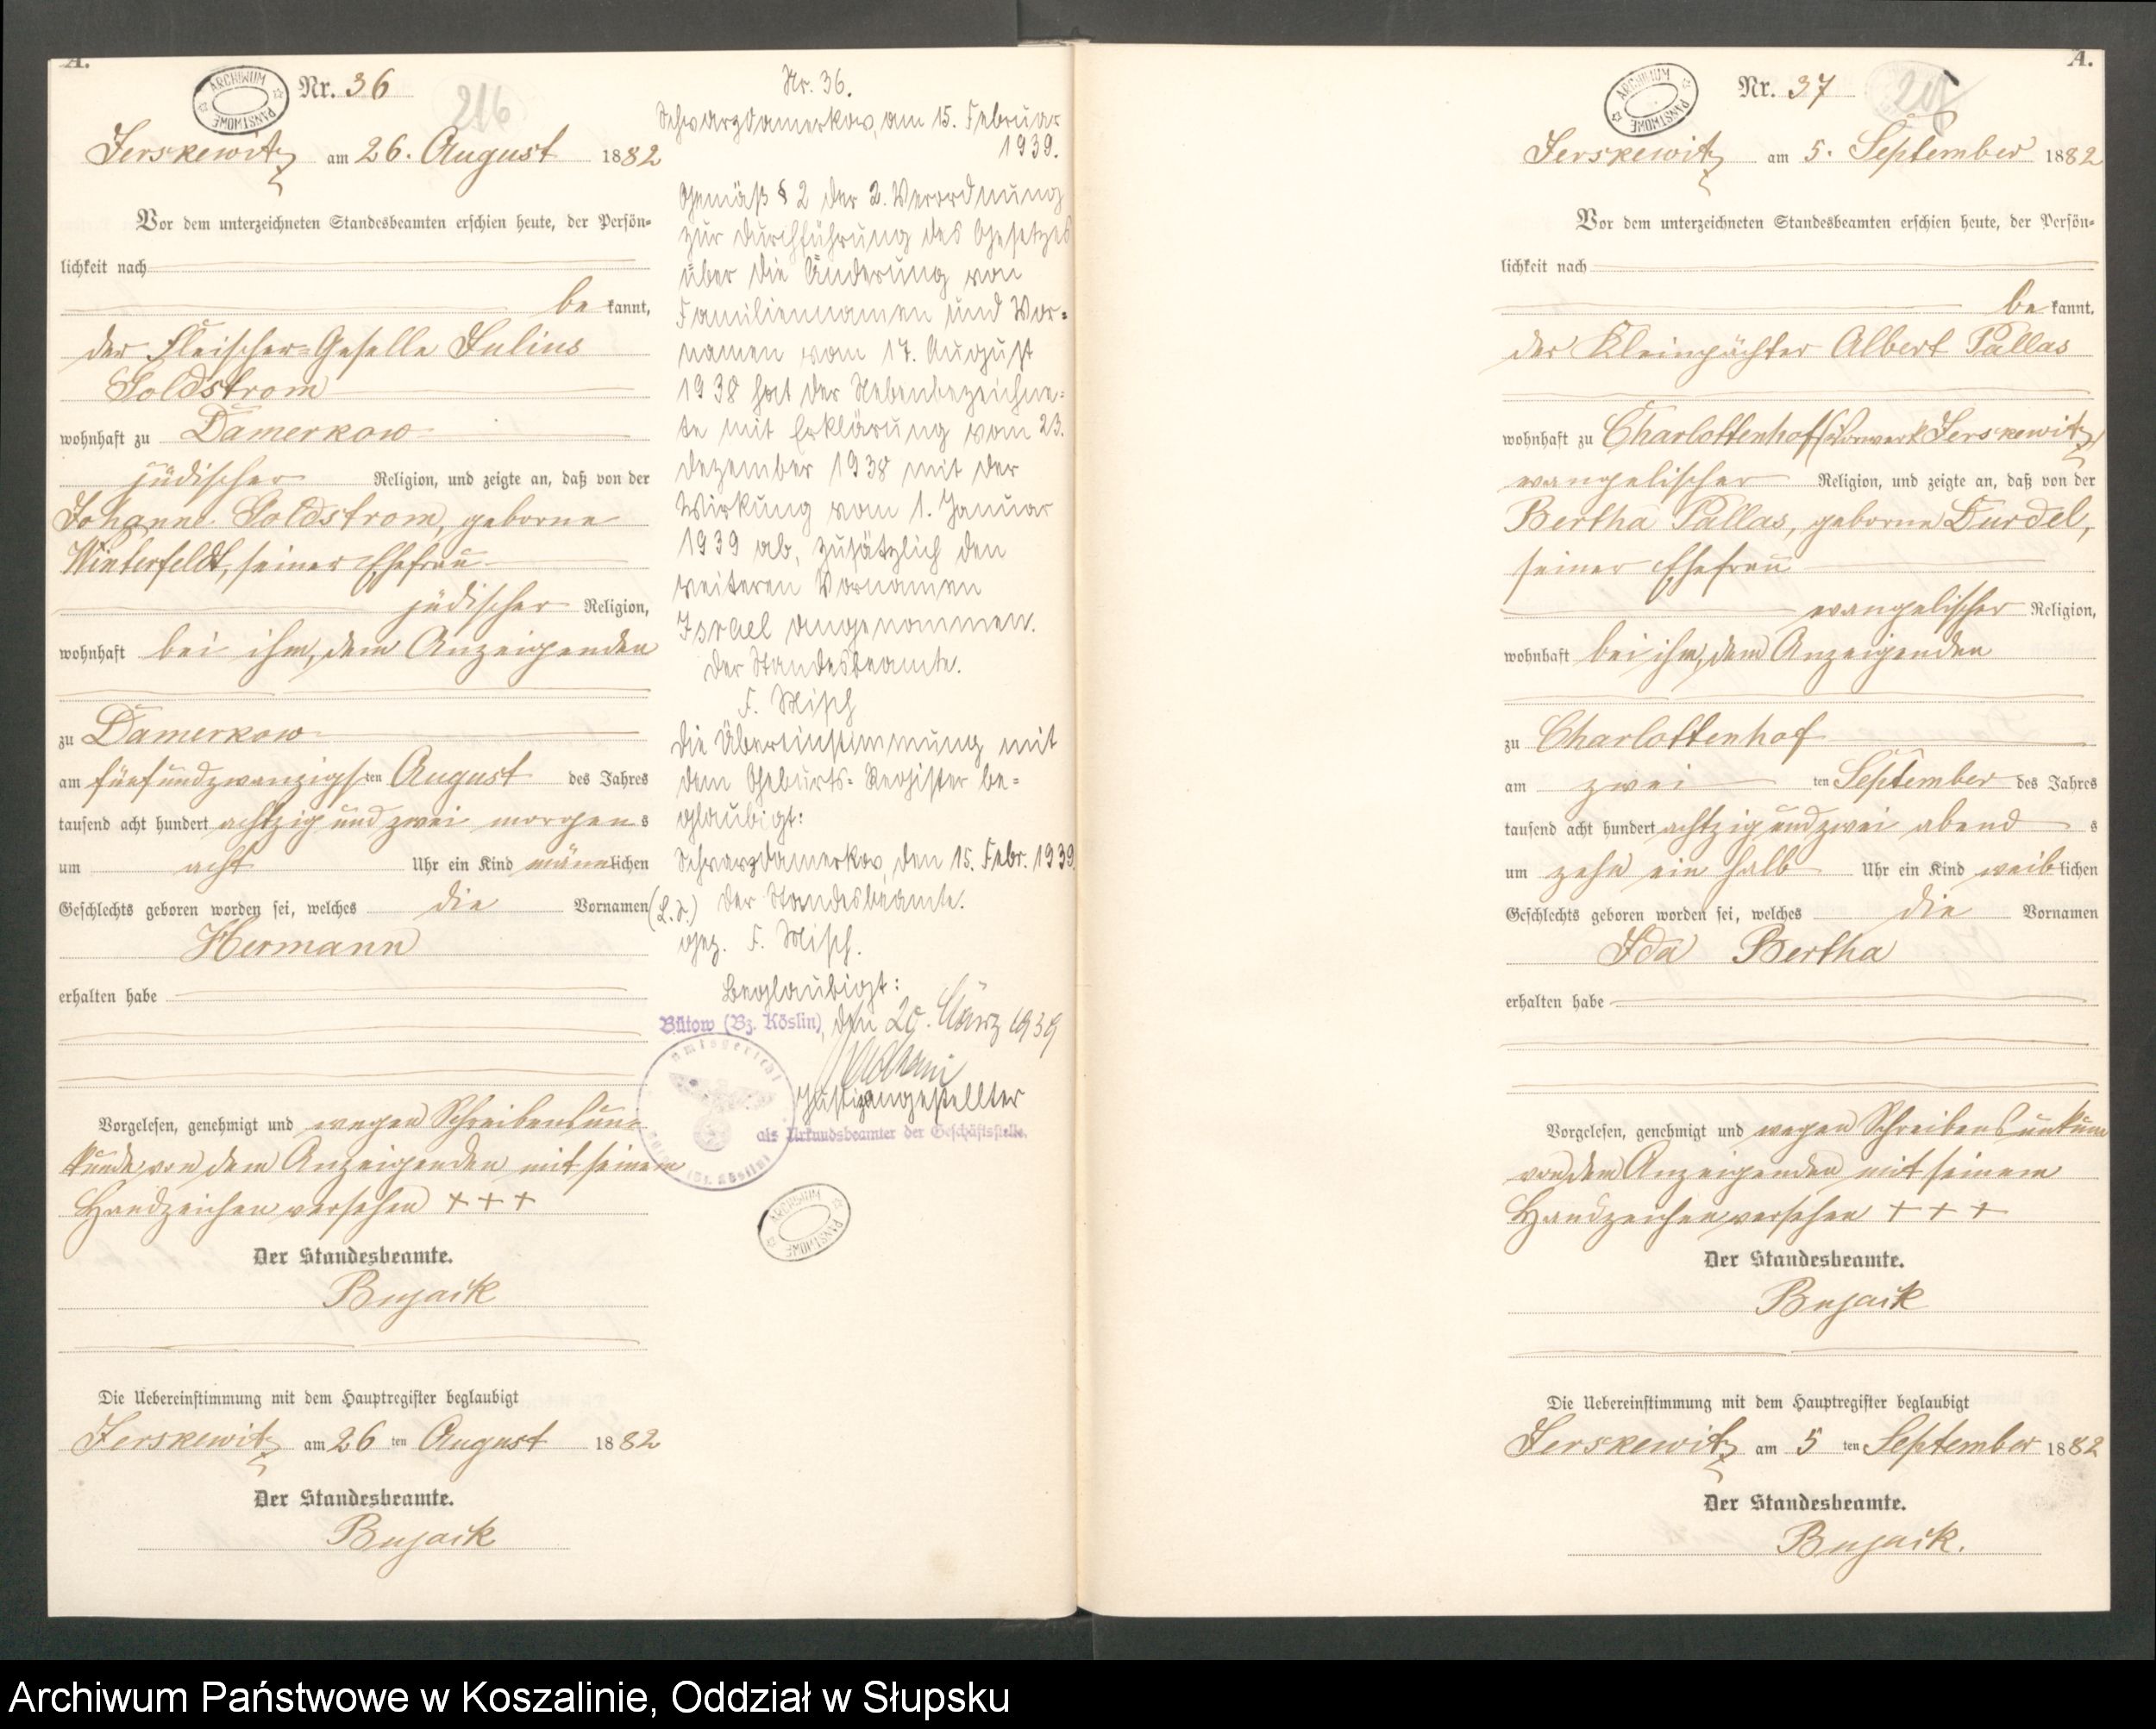 A.
ARCHIWUM PAŃSTWOWE
Nr. 36
216
Jerskewitz am 26. August 1882
Vor dem unterzeichneten Standesbeamten erschien heute, der Persön-
lichkeit nach
be kannt,
der Fleischer-Geselle Julius
Goldstrom
wohnhaft zu Damerkow
jüdischer Religion, und zeigte an, daß von der
Johanne Goldstrom, geborne
Winterfeldt, seiner Ehefrau
jüdischer Religion,
wohnhaft bei ihm, dem Anzeigenden
zu Damerkow
am fünfundzwanzigsten August des Jahres
tausend acht hundert achtzig und zwei morgens
um acht Uhr ein Kind männlichen
Geschlechts geboren worden sei, welches die Vornamen
Hermann
erhalten habe
Vorgelesen, genehmigt und wegen Schreibensun-
kunde von dem Anzeigenden mit seinem
Handzeichen versehen + + +
Der Standesbeamte.
Bujack
Die Uebereinstimmung mit dem Hauptregister beglaubigt
Jerskewitz am 26 ten August 1882
Der Standesbeamte.
Bujack
Nr. 36.
Schwarzdamerkow, am 15. Februar
1939.
Gemäß § 2 der 2. Verordnung
zur Durchführung des Gesetzes
über die Änderung von
Familiennamen und Vor-
namen vom 17. August
1938 hat der Nebenbezeichne-
te mit Erklärung vom 23.
Dezember 1938 mit der
Wirkung vom 1. Januar
1939 ab, zusätzlich den
weiteren Vornamen
Israel angenommen.
Der Standesbeamte.
F. Misch
Die Übereinstimmung mit
dem Geburts-Register be-
glaubigt:
Schwarzdamerkow, den 15. Febr. 1939.
(L.S.) Der Standesbeamte.
gez. F. Misch.
Beglaubigt:
Bütow (Bz. Köslin), den 20. März 1939
Justizangestellter
als Urkundsbeamter der Geschäftsstelle.
Amtsgericht
Bütow (Bz. Köslin)
ARCHIWUM PAŃSTWOWE
A.
ARCHIWUM PAŃSTWOWE
Nr. 37
Jerskewitz am 5. September 1882
Vor dem unterzeichneten Standesbeamten erschien heute, der Persön-
lichkeit nach
be kannt,
der Kleinpächter Albert Pallas
wohnhaft zu Charlottenhof (Vorwerk Jerskewitz)
evangelischer Religion, und zeigte an, daß von der
Bertha Pallas, geborne Durdel,
seiner Ehefrau
evangelischer Religion,
wohnhaft bei ihm, dem Anzeigenden
zu Charlottenhof
am zwei ten September des Jahres
tausend acht hundert achtzig und zwei abend s
um zehn ein halb Uhr ein Kind weiblichen
Geschlechts geboren worden sei, welches die Vornamen
Ida Bertha
erhalten habe
Vorgelesen, genehmigt und wegen Schreibensunkunde
von dem Anzeigenden mit seinem
Handzeichen versehen + + +
Der Standesbeamte.
Bujack
Die Uebereinstimmung mit dem Hauptregister beglaubigt
Jerskewitz am 5 ten September 1882
Der Standesbeamte.
Bujack.
Archiwum Państwowe w Koszalinie, Oddział w Słupsku